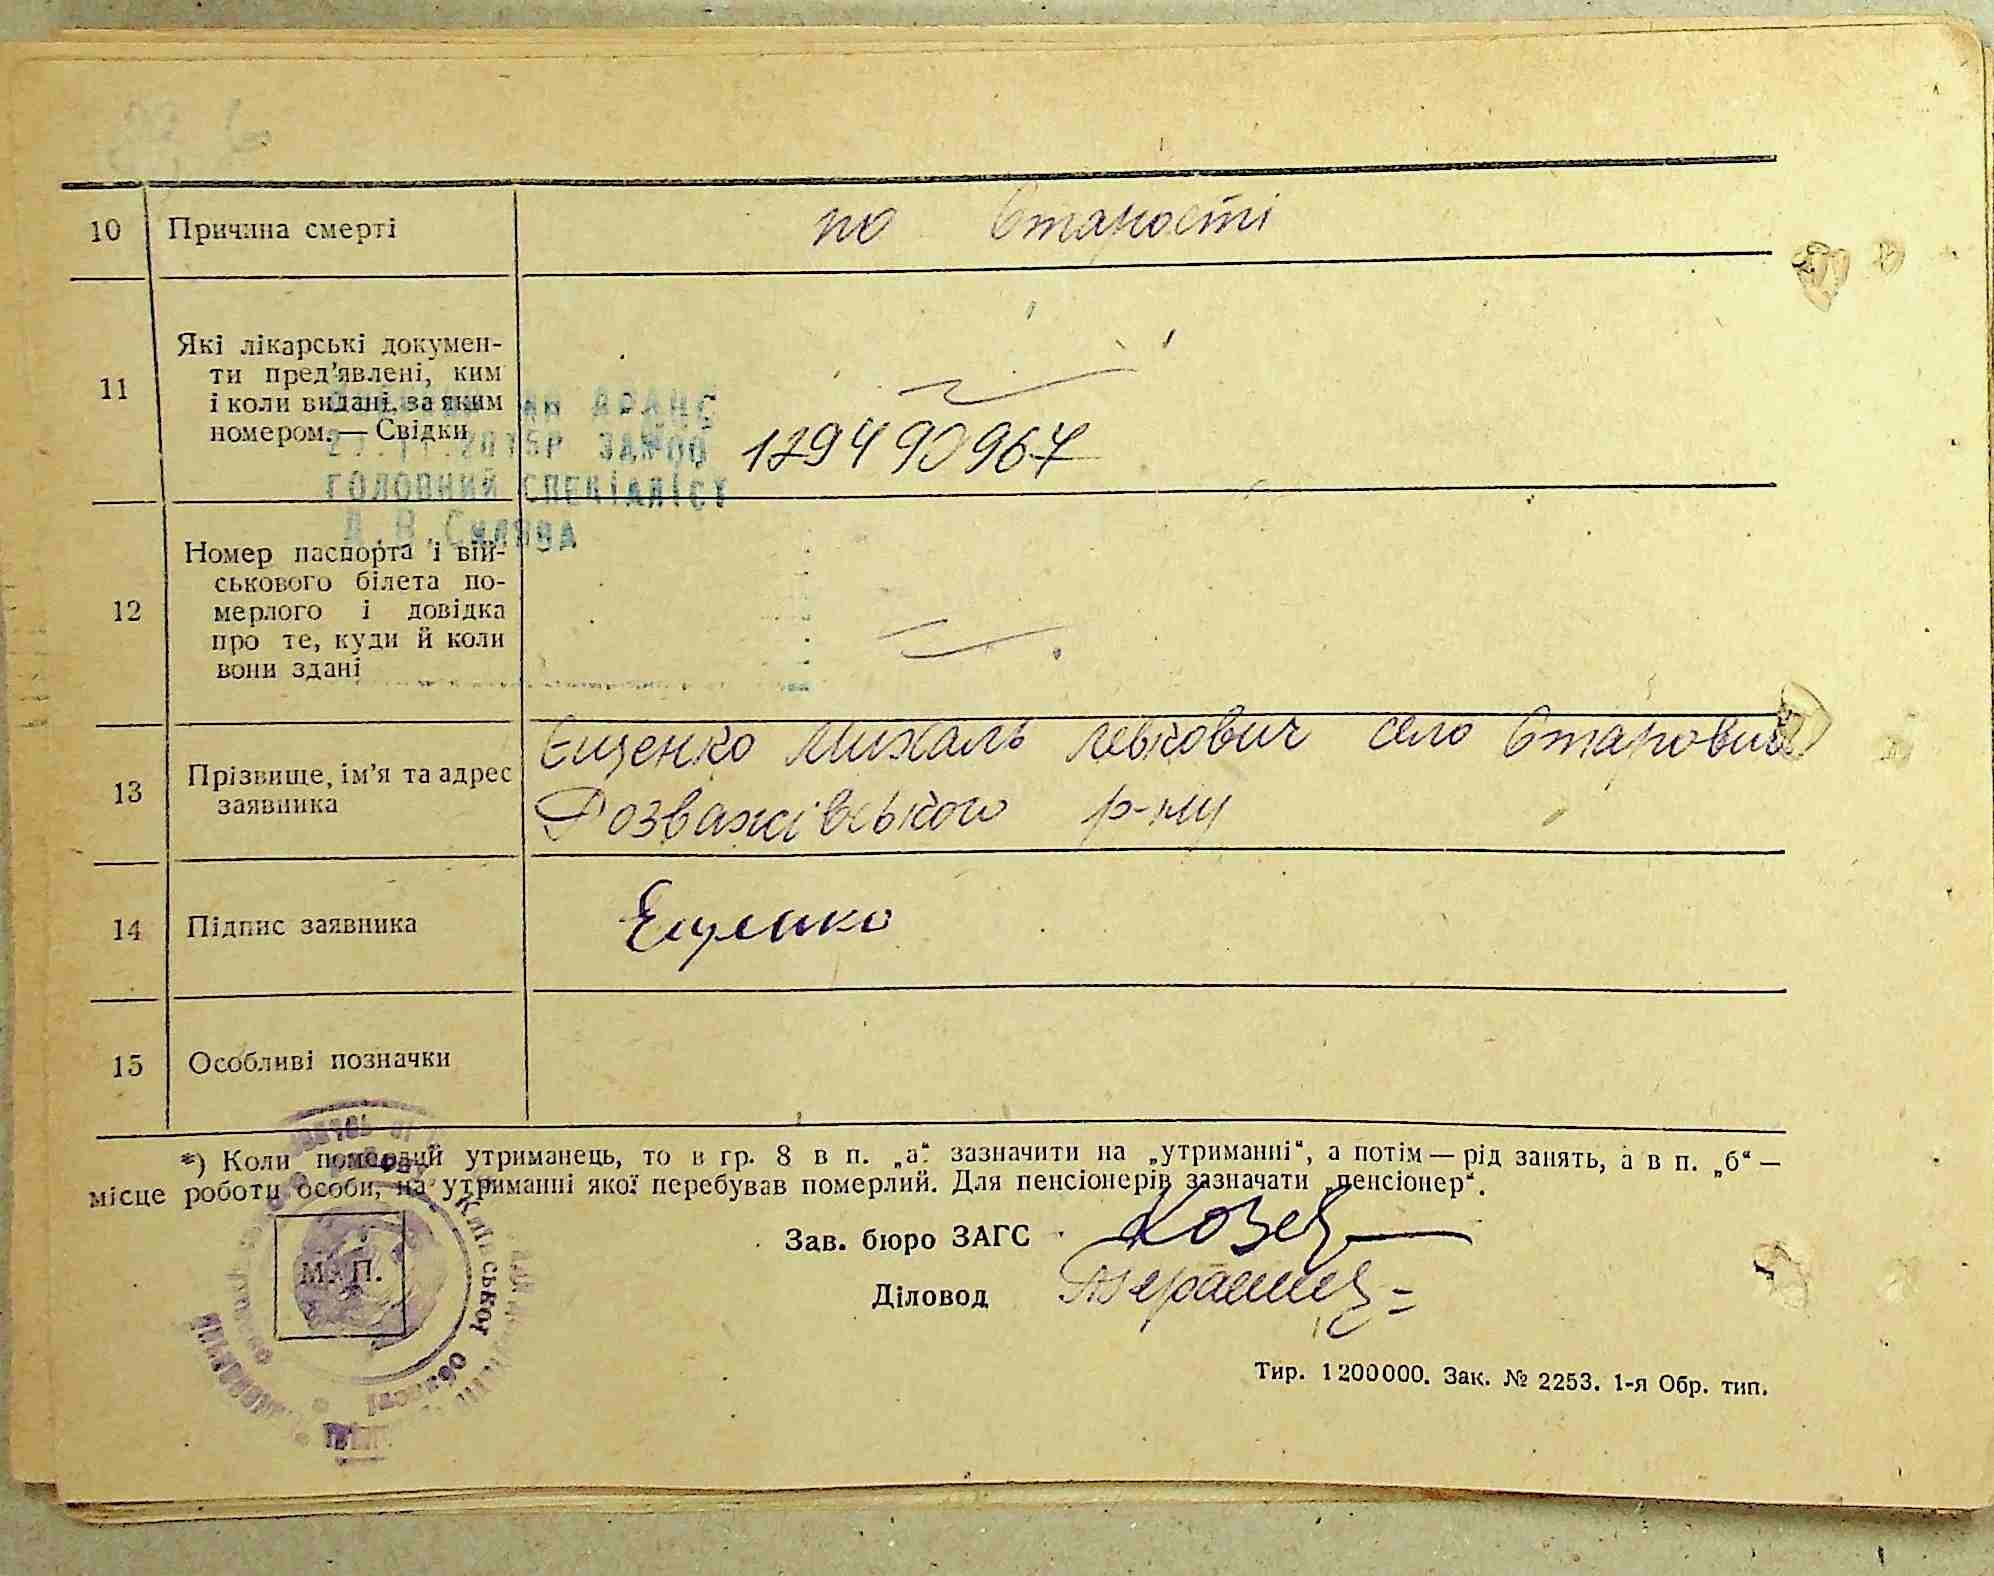 10 Причина смерті по Старості
11 Які лікарські докумен-
ти пред’явлені, ким
і коли видані, за яким
номером.— Свідки
129490967
ГОЛОВНИЙ СПЕЦІАЛІСТ
12 Номер паспорта і вій-
ськового білета по-
мерлого і довідка
про те, куди й коли
вони здані
13 Прізвище, ім’я та адрес
заявника
Єщенко Михаль Левкович село Старовичі
Розважівського р-ну
14 Підпис заявника Ещенко
15 Особливі позначки
*) Коли померлий утриманець, то в гр. 8 в п. „а“ зазначити на „утриманні“, а потім — рід занять, а в п. „б“ —
місце роботи особи, на утриманні якої перебував померлий. Для пенсіонерів зазначати „пенсіонер“.
Зав. бюро ЗАГС
Діловод
М. П.
Київської області
Тир. 1200000. Зак. № 2253. 1-я Обр. тип.